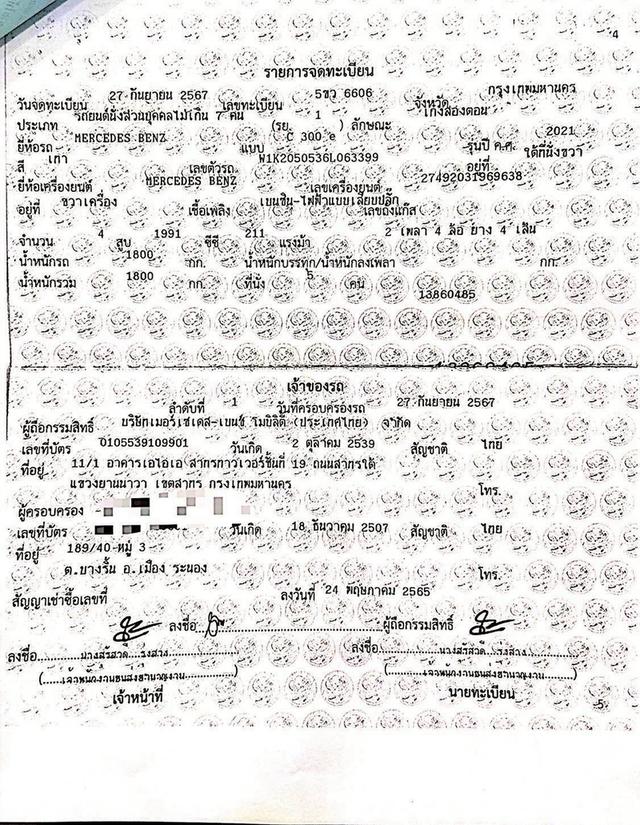 4
รายการจดทะเบียน
วันจดทะเบียน 27 กันยายน 2567 เลขทะเบียน 5ขว 6606 จังหวัด กรุงเทพมหานคร
ประเภท รถยนต์นั่งส่วนบุคคลไม่เกิน 7 คน (รย. 1 ) ลักษณะ เก๋งสองตอน
ยี่ห้อรถ MERCEDES BENZ แบบ C 300 e รุ่นปี ค.ศ. 2021
สี เทา เลขตัวรถ W1K2050536L063399 อยู่ที่ ใต้ที่นั่งขวา
ยี่ห้อเครื่องยนต์ MERCEDES BENZ เลขเครื่องยนต์ 27492031969638
อยู่ที่ ขวาเครื่อง เชื้อเพลิง เบนซิน-ไฟฟ้าแบบเสียบปลั๊ก เลขถังแก๊ส
จำนวน 4 สูบ 1991 ซีซี 211 แรงม้า 2 เพลา 4 ล้อ ยาง 4 เส้น
น้ำหนักรถ 1800 กก. น้ำหนักบรรทุก/น้ำหนักลงเพลา กก.
น้ำหนักรวม 1800 กก. ที่นั่ง 5 คน
13860485
เจ้าของรถ
ลำดับที่ 1 วันที่ครอบครองรถ 27 กันยายน 2567
ผู้ถือกรรมสิทธิ์ บริษัทเมอร์เซเดส-เบนซ์ โมบิลิตี้ (ประเทศไทย) จำกัด
เลขที่บัตร 0105539109901 วันเกิด 2 ตุลาคม 2539 สัญชาติ ไทย
ที่อยู่ 11/1 อาคารเอไอเอ สาทรทาวเวอร์ชั้นที่ 19 ถนนสาทรใต้
แขวงยานนาวา เขตสาทร กรุงเทพมหานคร
โทร.
ผู้ครอบครอง
เลขที่บัตร วันเกิด 18 ธันวาคม 2507 สัญชาติ ไทย
ที่อยู่ 189/40 หมู่ 3
ต.บางริ้น อ.เมือง ระนอง โทร.
สัญญาเช่าซื้อเลขที่ ลงวันที่ 24 พฤษภาคม 2565
ลงชื่อ ผู้ถือกรรมสิทธิ์
ลงชื่อ ลงชื่อ
(เจ้าพนักงานขนส่งชำนาญงาน) (เจ้าพนักงานขนส่งชำนาญงาน)
เจ้าหน้าที่ นายทะเบียน
5